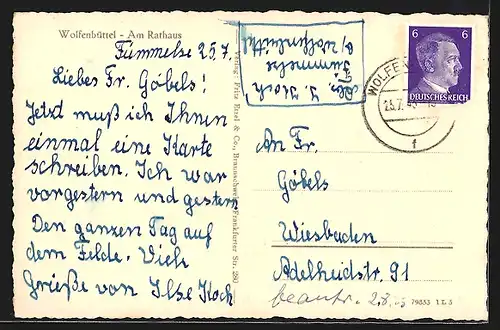 Wolfenbüttel - Am Rathaus
Fümmelse 25.7.
Liebes Fr. Göbels!
Jetzt muß ich Ihnen
einmal eine Karte
schreiben. Ich war
vorgestern und gestern
Den ganzen Tag auf
dem Felde. Viele
Grieße von Ilse Koch
Abs. I. Koch
Fümmelse
ü/ Wolfenbüttel
Verlag: Fritz & Co., Braunschweig, Frankfurter Str. 250
WOLFE
6 6
DEUTSCHES REICH
f
An Fr.
Göbels
Wiesbaden
Adelheidstr. 91
beantw. 2.8.
79853 1 L 5